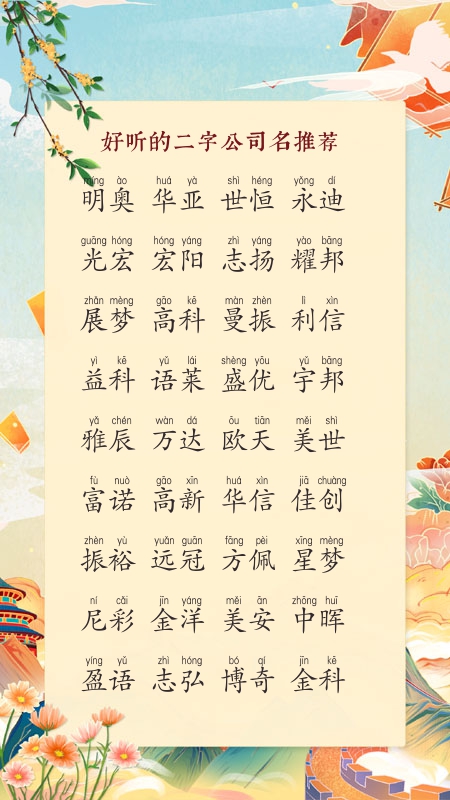 好听的二字公司名推荐
míng ào huá yà shì héng yǒng dí
明奥 华亚 世恒 永迪
guāng hóng hóng yáng zhì yáng yào bāng
光宏 宏阳 志扬 耀邦
zhǎn mèng gāo kē màn zhèn lì xìn
展梦 高科 曼振 利信
yì kē yǔ lái shèng yōu yǔ bāng
益科 语莱 盛优 宇邦
yǎ chén wàn dá ōu tiān měi shì
雅辰 万达 欧天 美世
fù nuò gāo xīn huá xìn jiā chuàng
富诺 高新 华信 佳创
zhèn yù yuǎn guān fāng pèi xīng mèng
振裕 远冠 方佩 星梦
ní cǎi jīn yáng měi ān zhōng huī
尼彩 金洋 美安 中晖
yíng yǔ zhì hóng bó qí jīn kē
盈语 志弘 博奇 金科